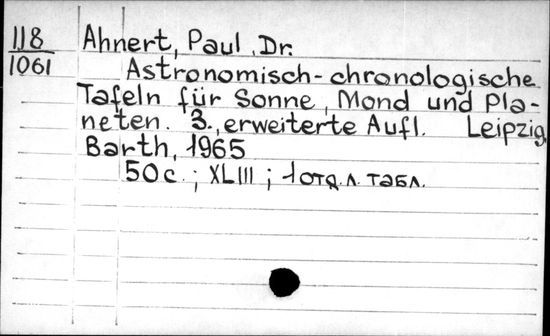 118
1061
Ahnert, Paul, Dr.
Astronomisch-chronologische
Tafeln für Sonne, Mond und Pla-
neten. 3., erweiterte Aufl. Leipzig,
Barth, 1965
50 с.; XLIII; 1 отд. л. табл.